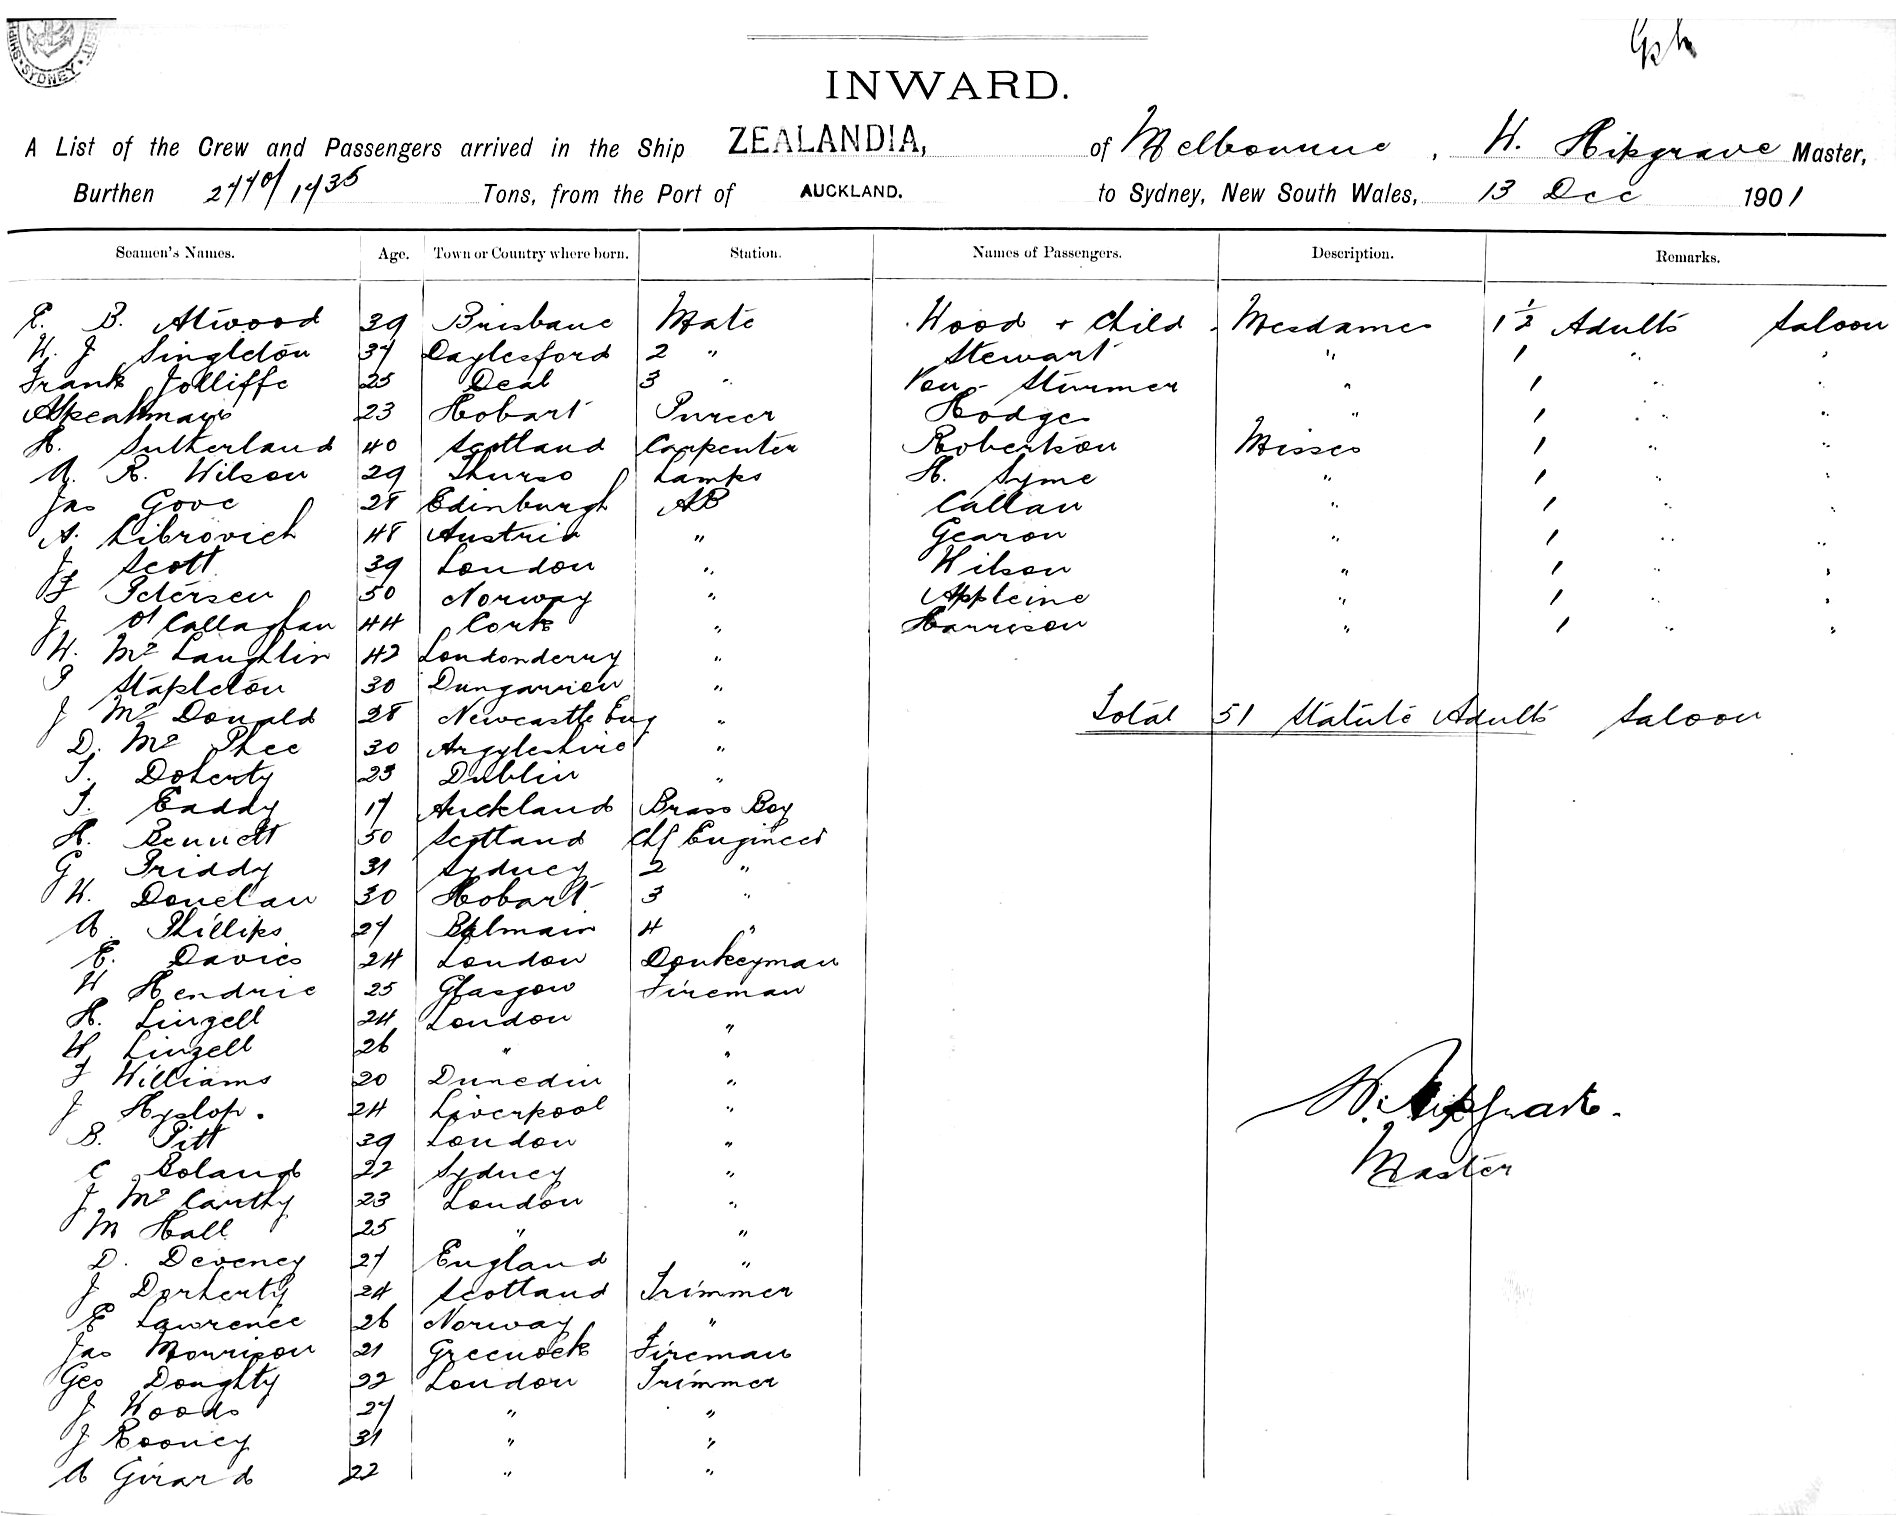 SYDNEY
INWARD.
A List of the Crew and Passengers arrived in the Ship ZEALANDIA, of Melbourne, W. Hipgrave Master,
Burthen 2770/1735 Tons, from the Port of AUCKLAND. to Sydney, New South Wales, 13 Dec 1901
Seamen's Names. Age. Town or Country where born. Station. Names of Passengers. Description. Remarks.
E. B. Atwood 39 Brisbane Mate Wood + Child Mesdames 1 1/2 Adults Saloon
W. J Singleton 37 Daylesford 2 " Stewart " 1 " "
Frank Jolliffe 25 Deal 3 " Von Sturmer " 1 " "
23 Hobart Purser Hodge " 1 " "
H. Sutherland 40 Scotland Carpenter Robertson Misses 1 " "
A. R. Wilson 29 Thurso Lamps H. Syme " 1 " "
Jas Gove 28 Edinburgh AB Callan " 1 " "
A. Librovich 48 Austria " Gearon " 1 " "
J. Scott 39 London " Wilson " 1 " "
F Petersen 50 Norway " Appleine " 1 " "
J. O'Callaghan 44 Cork " Harrison " 1 " "
W. Mc Laughlin 42 Londonderry "
P Stapleton 30 Dungarvien "
J Mc Donald 28 Newcastle Eng "
Total 51 Statute Adults Saloon
D. Mc Phee 30 Argyleshire "
T. Doherty 23 Dublin "
T. Eaddy 17 Auckland Brass Boy
H. Bennett 50 Scotland Chf Engineer
G Priddy 31 Sydney 2 "
W. Donelan 30 Hobart 3 "
A Phillips 27 Balmain 4 "
E. Davies 24 London Donkeyman
W Hendrie 25 Glasgow Fireman
H. Linzell 24 London "
W Linzell 26 " "
F Williams 20 Dunedin "
J Hyslop. 24 Liverpool "
B. Pitt 39 London "
C Boland 22 Sydney "
J Mc Carthy 23 London "
M Hall 25 " "
D. Deveney 27 England "
J Dorherty 24 Scotland Trimmer
E Lawrence 26 Norway "
Jas Morrison 21 Greenock Fireman
Geo Doughty 22 London Trimmer
J Woods 27 " "
J Rooney 31 " "
A Girard 22 " "
W. Hipgrave.
Master